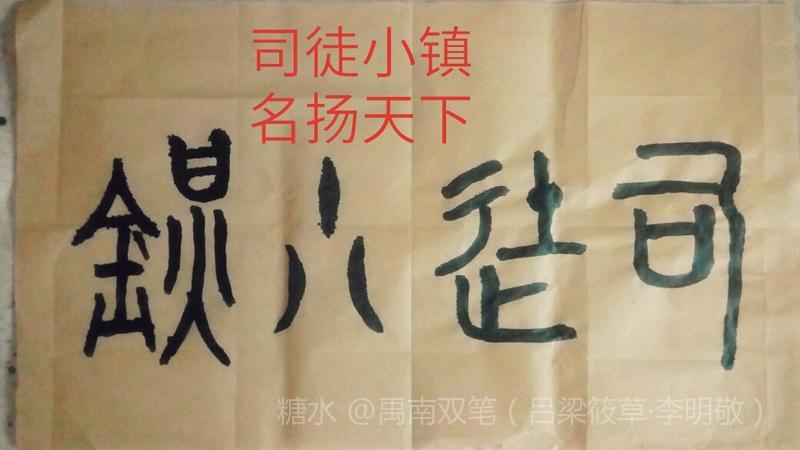 司徒小镇
名扬天下
司徒小鎮
糖水 @禹南双笔（吕梁筱草·李明敬）